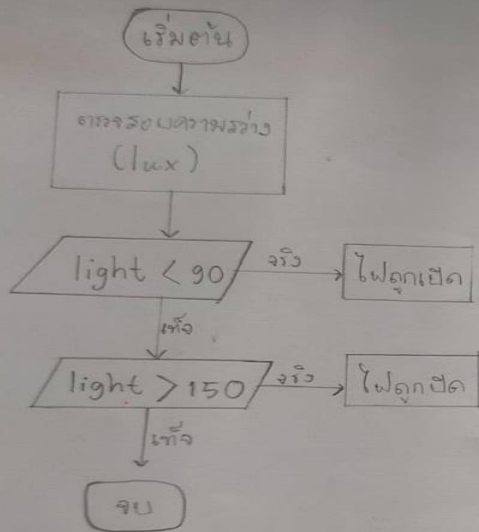 เริ่มต้น
ตรวจสอบความสว่าง
(lux)
light < 90
จริง
ไฟถูกเปิด
เท็จ
light > 150
จริง
ไฟถูกปิด
เท็จ
จบ